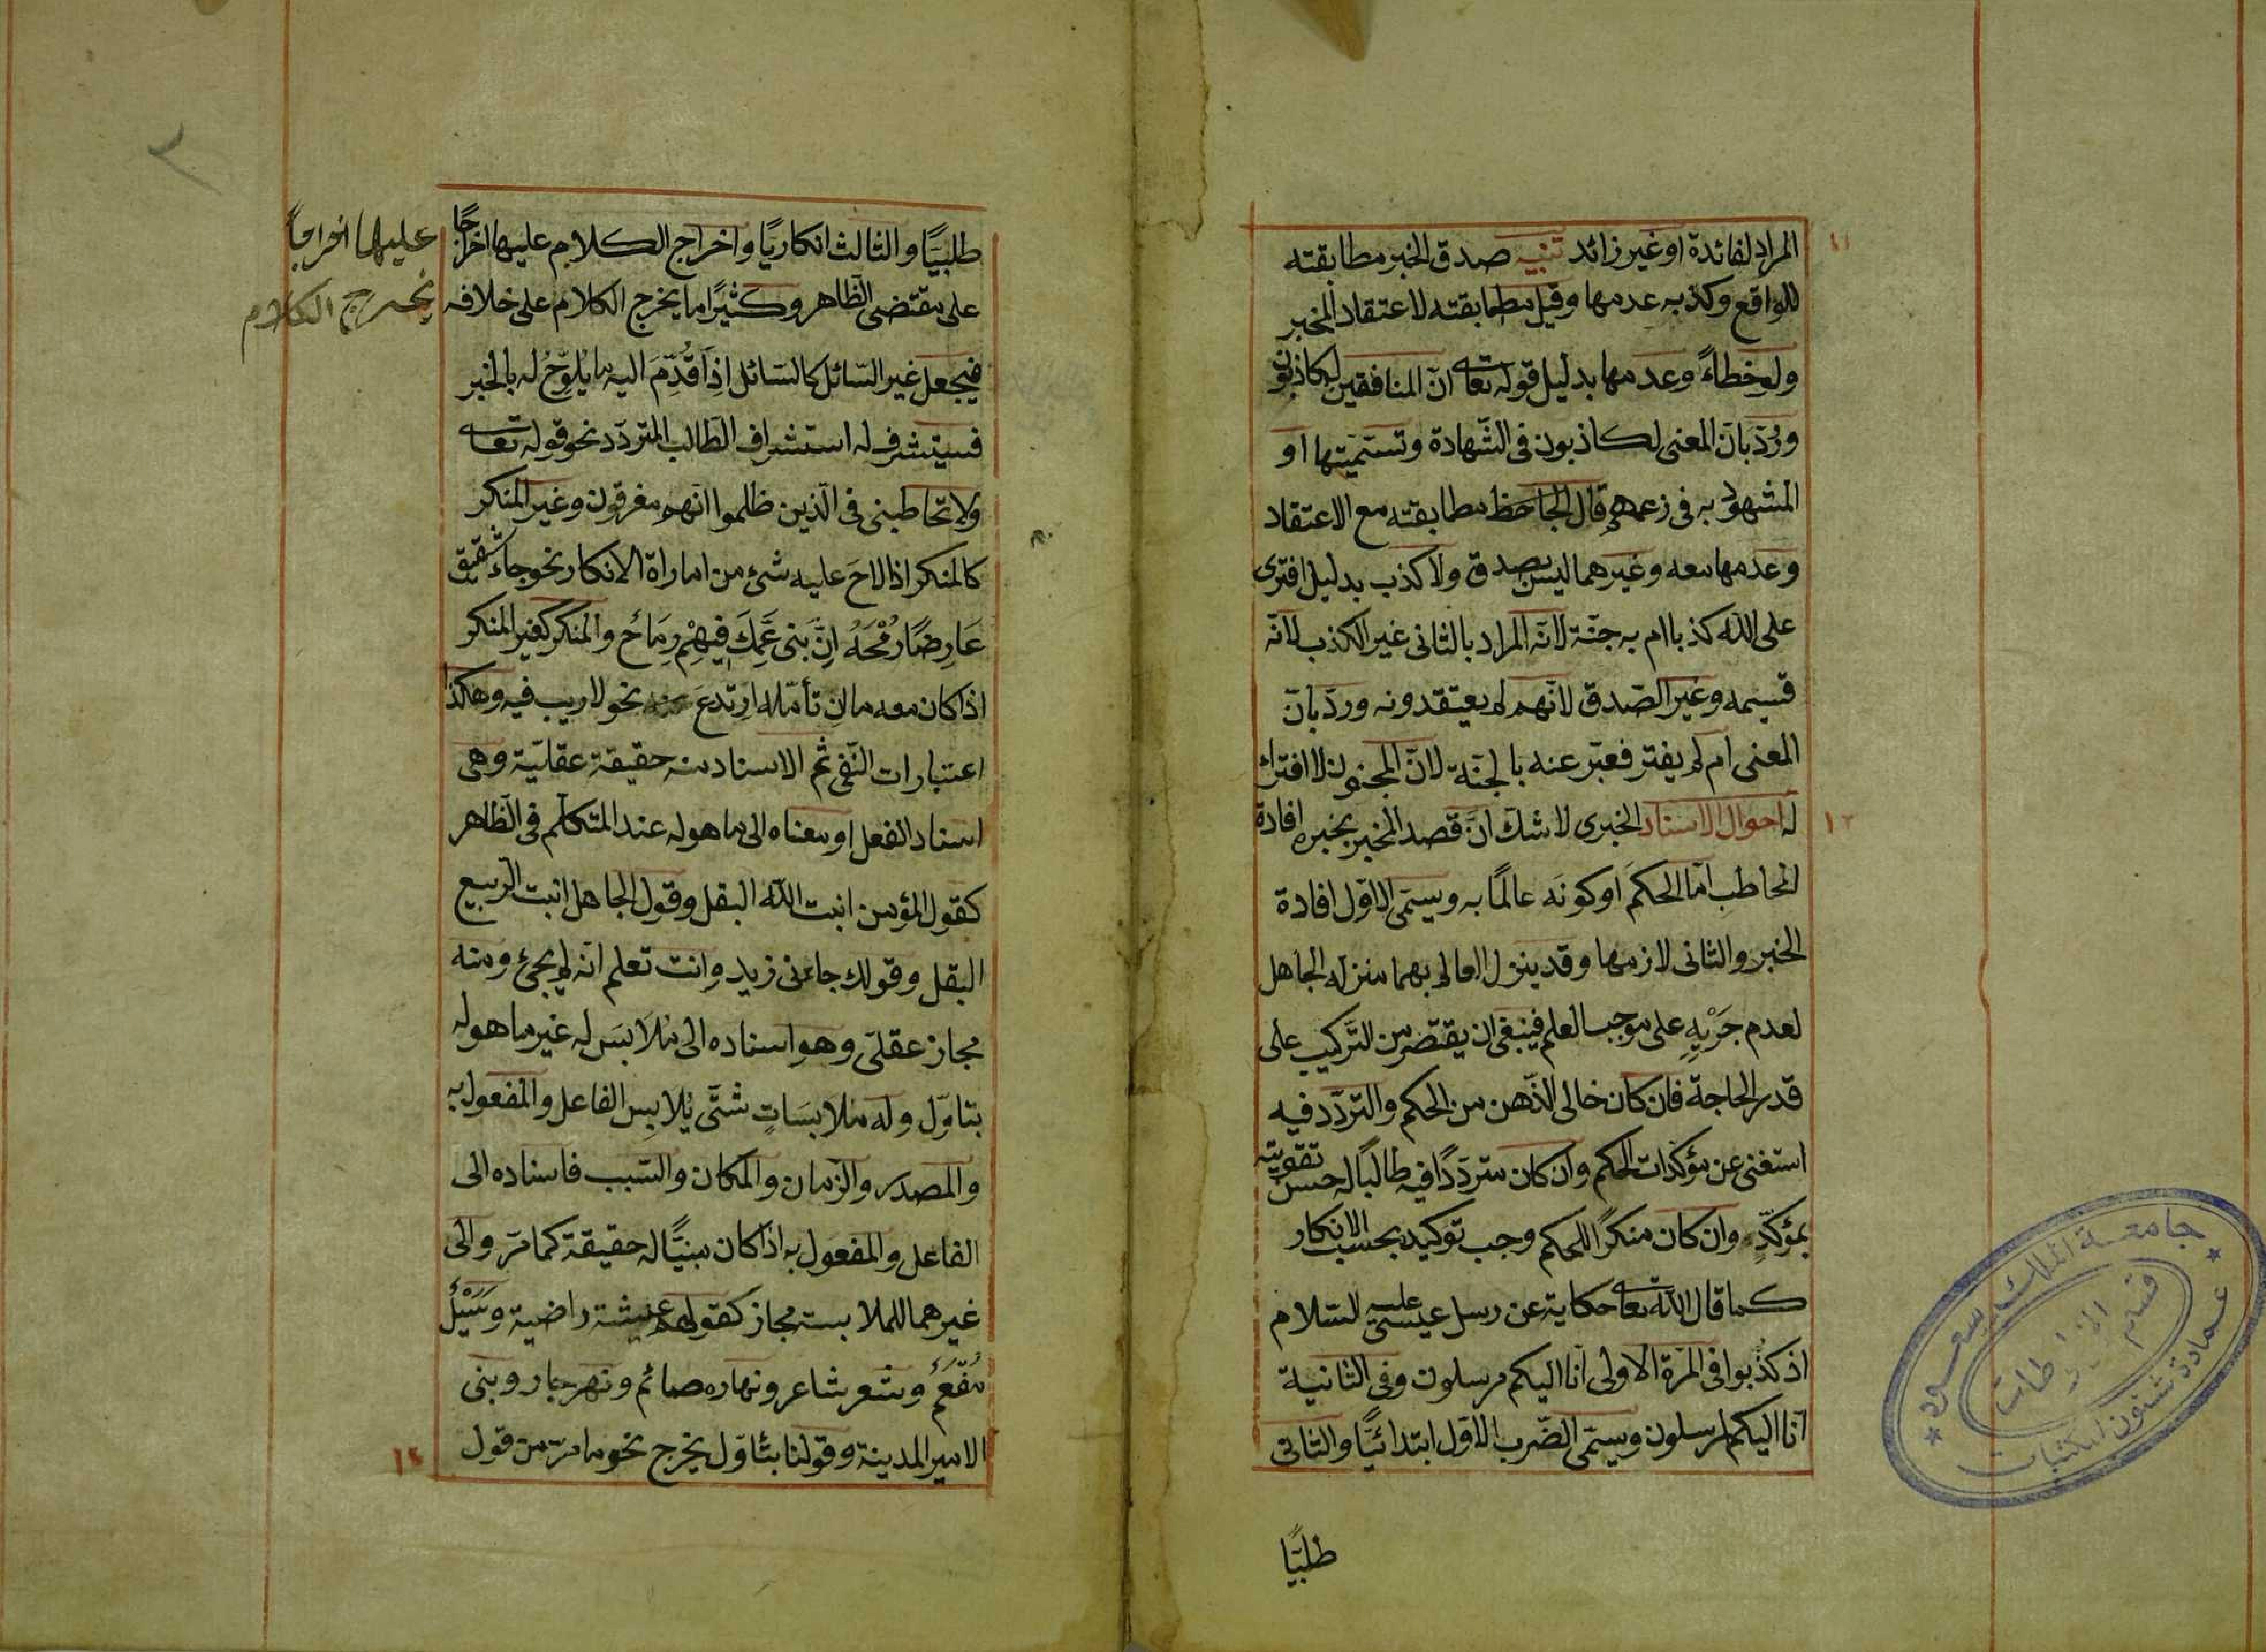 المراد لفائدة او غير زائد تنبيه صدق الخبر مطابقته
للواقع وكذبه عدمها وقيل مطابقته لاعتقاد المخبر
ولو خطاءً وعدمها بدليل قوله تعالى انّ المنافقين لكاذبون
ورُدّ بانّ المعنى لكاذبون فى الشّهادة وتسميتها او
المشهود به فى زعمهم قال الجاحظ مطابقته مع الاعتقاد
وعدمها معه وغيرهما ليس بصدق ولا كذب بدليل افترى
على الله كذبا ام به جنّة لانّ المراد بالثانى غير الكذب لانّه
قسيمه وغير الصّدق لانّهم لم يعتقدونه وردّ بانّ
المعنى ام لم يفتر فعبّر عنه بالجنّة لانّ المجنون لا افتراء
له احوال الاسناد الخبرى لا شك انّ قصد المخبر بخبره افادة
المخاطب امّا الحكم او كونه عالمًا به ويسمى الاوّل افادة
الخبر والثانى لازمها وقد ينزل العالم بهما منزلة الجاهل
لعدم جَرْيِهِ على موجب العلم فينبغى ان يقتصر من التّركيب على
قدر الحاجة فان كان خالى الذّهن من الحكم والتردّد فيه
استغنى عن مؤكّدات الحكم وان كان متردّدًا فيه طالبًا له حسن تقويته
بمؤكّدٍ وان كان منكرًا للحكم وجب توكيده بحسب الانكار
كما قال الله تعالى حكاية عن رسل عيسى عليه السّلام
اذ كذّبوا فى المرّة الاولى انّا اليكم مرسلون وفى الثانية
انّا اليكم لمرسلون ويسمّى الضّرب الاوّل ابتدائيًّا والثانى
طلبيًّا
طلبيًّا والثالث انكاريًا واخراج الكلام عليها اخراجًا
على مقتضى الظّاهر وكثيرًا ما يخرج الكلام على خلافه
فيجعل غير السّائل كالسّائل اذا قُدِّمَ اليه ما يُلوّحُ له بالخبر
فيستشرف له استشراف الطّالب المتردّد نحو قوله تعالى
ولا تخاطبنى فى الّذين ظلموا انّهم مغرقون وغير المنكر
كالمنكر اذا لاحَ عليه شئ من اماراة الانكار نحو جاء شقيق
عَارِضًا رُمْحَهُ اِنَّ بَنى عَمِّكَ فِيهِمْ رِمَاحُ والمنكر كغير المنكر
اذا كان معه ما ان تأمّله ارتدعَ نحو لاريب فيه وهكذا
اعتبارات النّفى ثم الاسناد منه حقيقة عقليّة وهى
اسناد الفعل او معناه الى ما هو له عند المتكلّم فى الظاهر
كقول المؤمن انبت الله البقل وقول الجاهل انبت الربيع
البقل وقولك جاءنى زيد وانت تعلم انّه لم يجئ ومنه
مجاز عقلىّ وهو اسناده الى مُلابَس له غير ما هو له
بتاوّل وله ملابسَاتٍ شتّى يُلابِس الفاعل والمفعول به
والمصدر والزّمان والمكان والسّبب فاسناده الى
الفاعل والمفعول به اذا كان مبنيًّا له حقيقة كما مرّ والى
غيرهما للملابسة مجاز كقولهم عيشة راضية وسَيْلٌ
مُفعَمٌ وشعر شاعر ونهاره صائم ونهر جار وبنى
الامير المدينة وقولنا بتأوّل يخرج نحو ما مرّ من قول
عليها اخراجًا
يخرج الكلام
١١
١٢
جامعة الملك سعود
عمادة شئون المكتبات
قسم المخطوطات